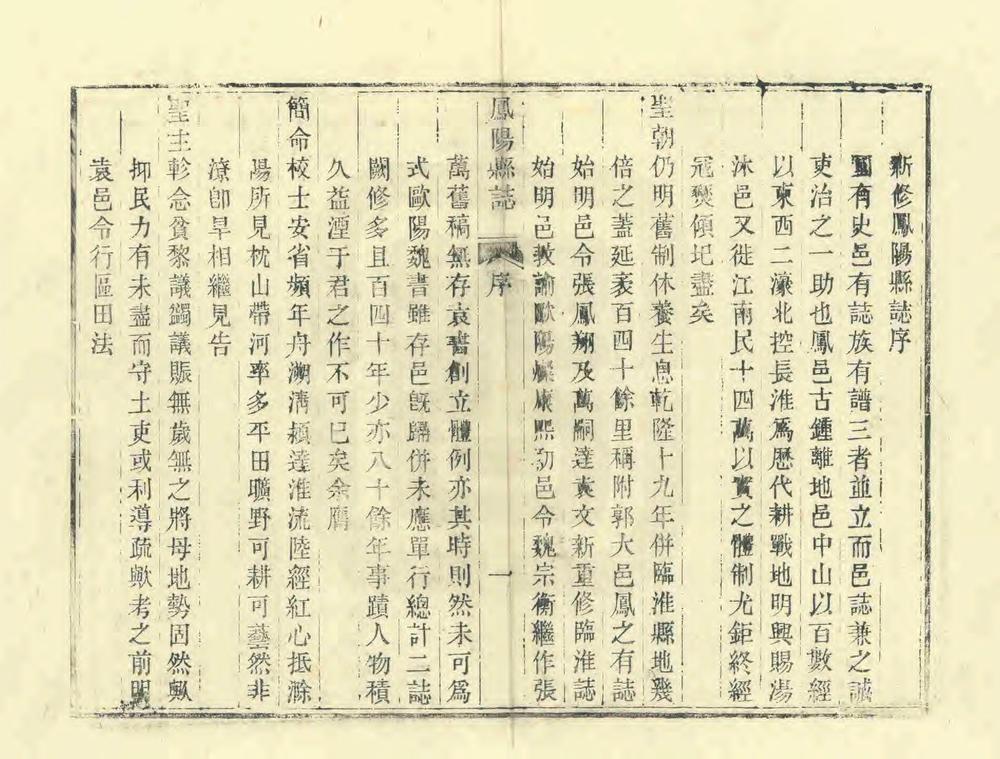 新修鳳陽縣誌序
國有史邑有誌族有譜三者並立而邑誌兼之誠
吏治之一助也鳳邑古鍾離地邑中山以百數經
以東西二濠北控長淮爲歷代耕戰地明興賜湯
沐邑又徙江南民十四萬以實之體制尤鉅終經
冠燹傾圮盡矣
聖朝仍明舊制休養生息乾隆十九年併臨淮縣地幾
倍之蓋延袤百四十餘里稱附郭大邑鳳之有誌
始明邑令張鳳翔及萬嗣達袁文新重修臨淮誌
始明邑教諭歐陽燦康熙初邑令魏宗衡繼作張
鳳陽縣誌 序 一
萬舊稿無存袁書創立體例亦其時則然未可爲
式歐陽魏書雖存邑既歸併未應單行總計二誌
闕修多且百四十年少亦八十餘年事蹟人物積
久益湮于君之作不可已矣余膺
簡命校士安省頻年舟溯淸潁達淮流陸經紅心抵滁
陽所見枕山帶河率多平田曠野可耕可藝然非
潦卽旱相繼見告
聖主軫念貧黎議蠲議賑無歲無之將毋地勢固然歟
抑民力有未盡而守土吏或利導疏歟考之前明
袁邑令行區田法